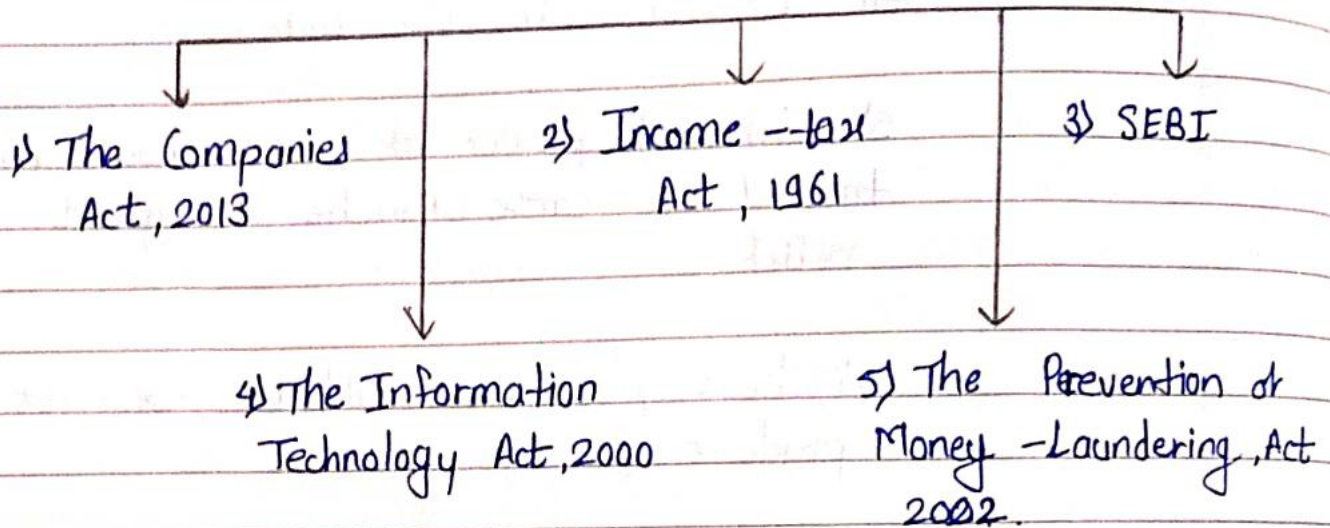 1) The Companies
Act, 2013
2) Income-tax
Act, 1961
3) SEBI
4) The Information
Technology Act, 2000
5) The Prevention of
Money-Laundering, Act
2002.